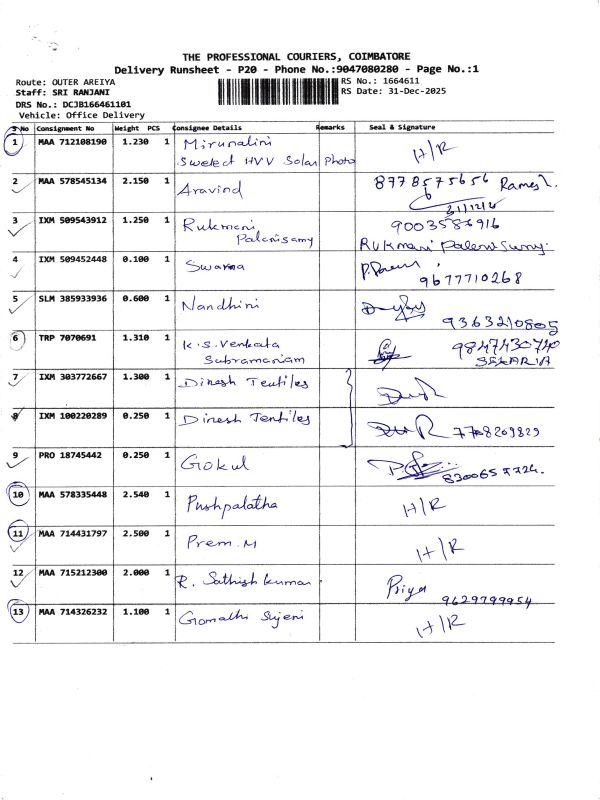 THE PROFESSIONAL COURIERS, COIMBATORE
Delivery Runsheet - P20 - Phone No.:9047080280 - Page No.:1
Route: OUTER AREIYA
RS No.: 1664611
Staff: SRI RANJANI
RS Date: 31-Dec-2025
DRS No.: DCJB166461101
Vehicle: Office Delivery
S No Consignment No Weight PCS Consignee Details Remarks Seal & Signature
1 MAA 712108190 1.230 1 Mirunalini H/R
Swelect HVV Solar Photo
2 MAA 578545134 2.150 1 Aravind 8778575656 Ramesh
31/12/2
3 IXM 509543912 1.250 1 Rukmani 9003586916
Palanisamy Rukmani Palanisamy
4 IXM 509452448 0.100 1 Swarna
9677710268
5 SLM 385933936 0.600 1 Nandhini
9363210805
6 TRP 7070691 1.310 1 K.S. Venkata 9847430740
Subramaniam SEKAR
7 IXM 303772667 1.300 1 Dinesh Textiles
8 IXM 100220289 0.250 1 Dinesh Textiles 7708209829
9 PRO 18745442 0.250 1 Gokul
8300657724.
10 MAA 578335448 2.540 1 Pushpalatha H/R
11 MAA 714431797 2.500 1 Prem.M H/R
12 MAA 715212300 2.000 1 R. Sathish kumar Priya
9629799954
13 MAA 714326232 1.100 1 Gomathi H/R